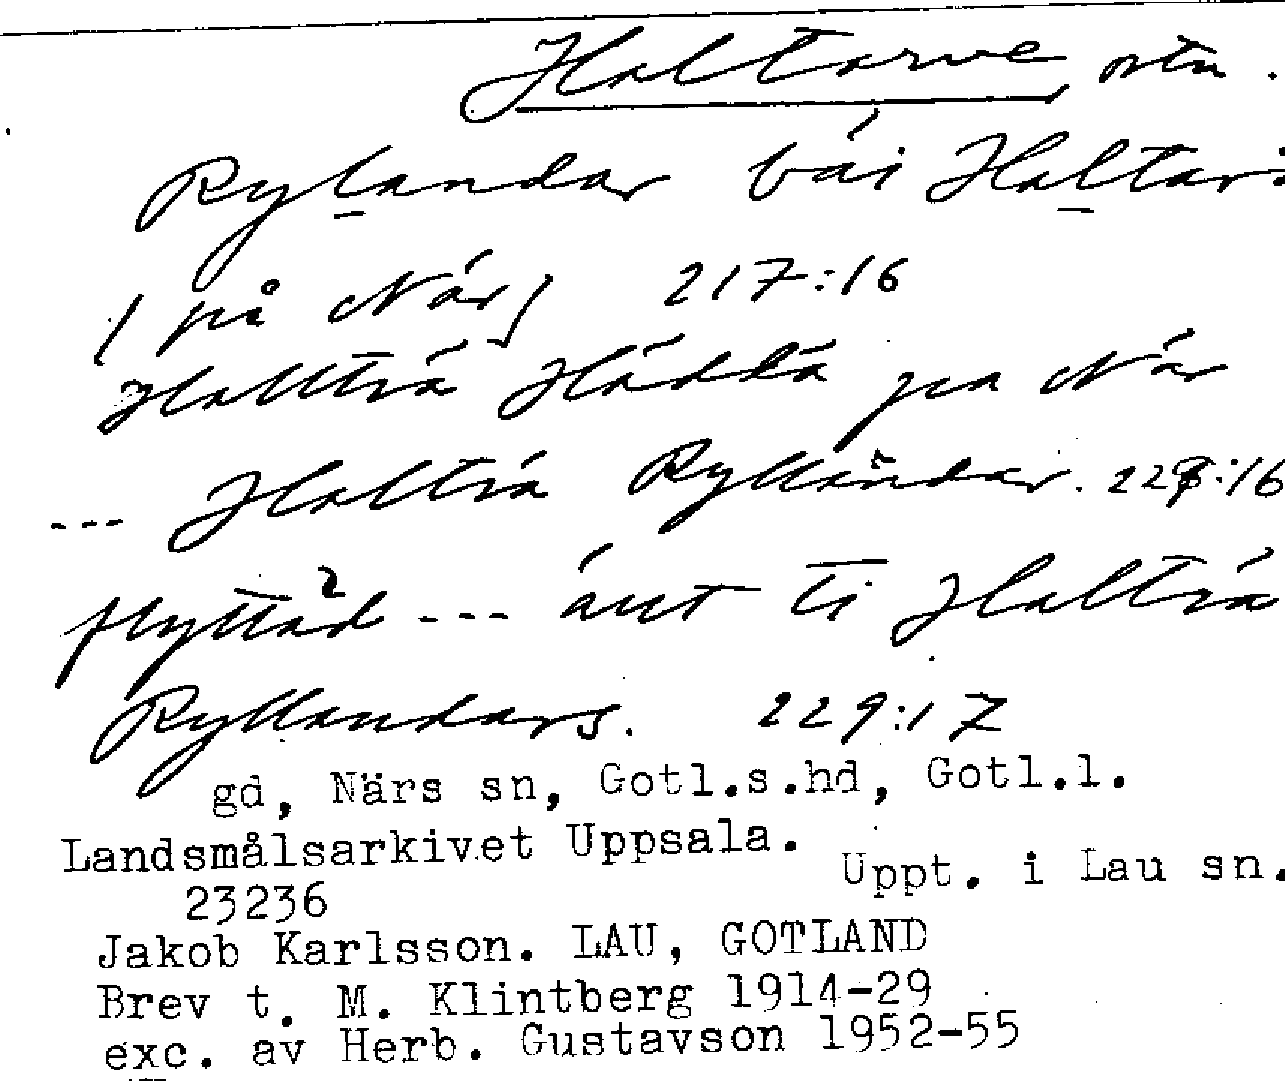 Haltarve, ortn.
Rylandar bái Haltari
(på När) 217:16
Halltrá Hádlá pa När
--- Haltrá Rylländar. 228:16
flyttäd --- áut ti Halltrá
Ryllandars. 229:17
gd, Närs sn, Gotl.s.hd, Gotl.l.
Landsmålsarkivet Uppsala. Uppt. i Lau sn.
23236
Jakob Karlsson. LAU, GOTLAND
Brev t. M. Klintberg 1914-29
exc. av Herb. Gustavson 1952-55